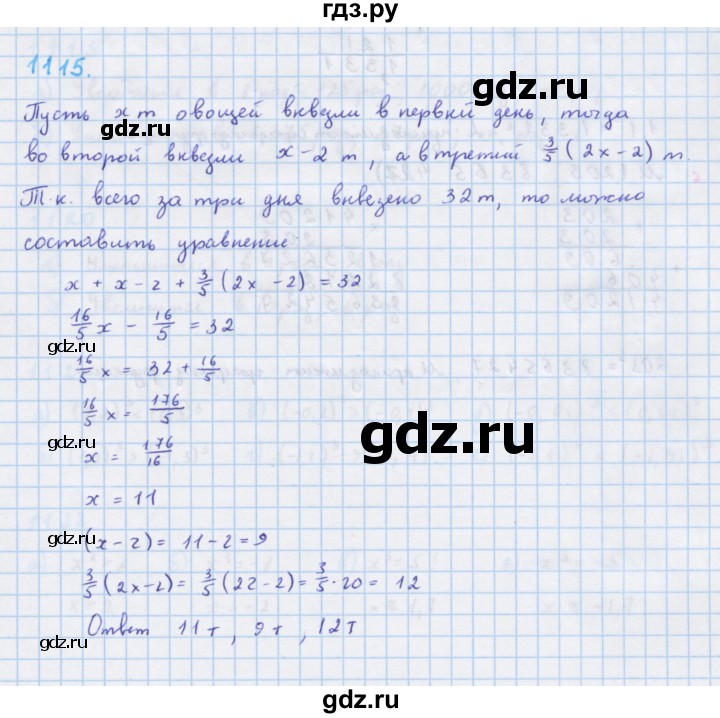 гдз.ру
1115.
Пусть x т овощей вывезли в первый день, тогда
во второй вывезли x - 2 т, а в третий 3/5 (2x - 2) т.
Т.к. всего за три дня вывезено 32 т, то можно
составить уравнение
x + x - 2 + 3/5 (2x - 2) = 32
16/5 x - 16/5 = 32
16/5 x = 32 + 16/5
16/5 x = 176/5
x = 176/16
x = 11
(x - 2) = 11 - 2 = 9
3/5 (2x - 2) = 3/5 (22 - 2) = 3/5 · 20 = 12
Ответ 11 т, 9 т, 12 т
gdz.ru
gdz.ru
gdz.ru
gdz.ru
gdz.ru
gdz.ru
gdz.ru
gdz.ru
gdz.ru
gdz.ru
gdz.ru
gdz.ru
gdz.ru